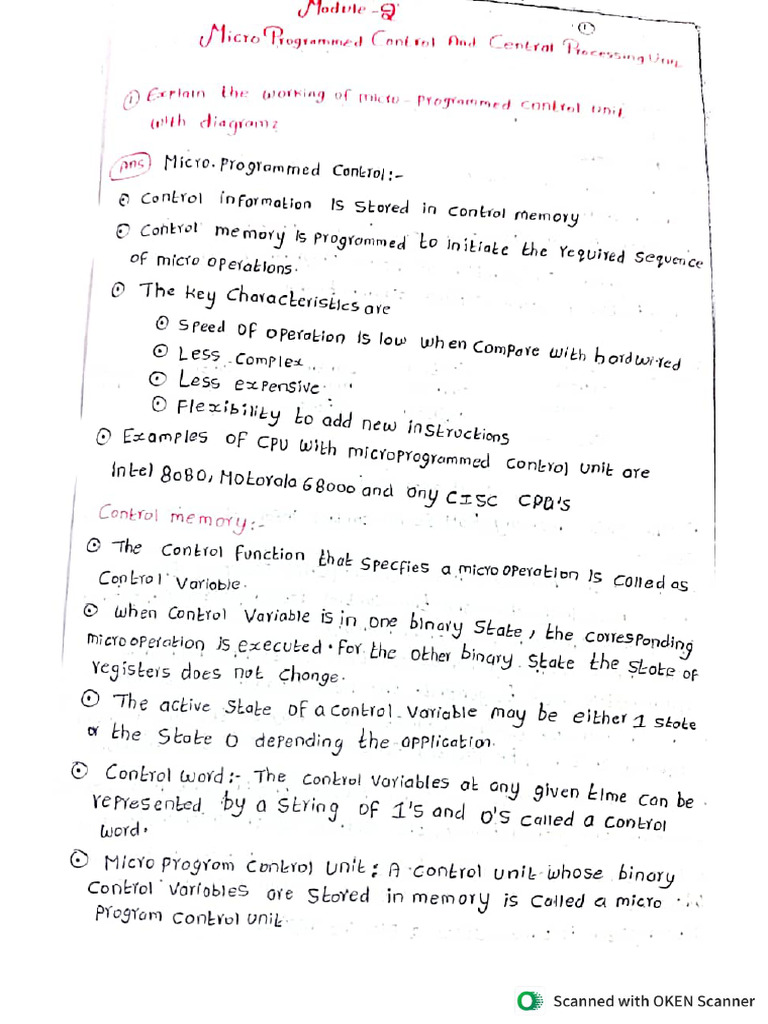 Module-2
①
Micro Programmed Control And Central Processing Unit
① Explain the working of micro-programmed control unit
with diagram?
Ans Micro.Programmed Control:-
⊙ Control information is stored in control memory
⊙ Control memory is programmed to initiate the required sequence
of micro operations.
⊙ The key characteristics are
⊙ Speed of operation is low when compare with hardwired
⊙ Less complex
⊙ Less expensive
⊙ Flexibility to add new instructions
⊙ Examples of CPU with microprogrammed control unit are
Intel 8080, Motorola 68000 and any CISC CPU's
Control memory:-
⊙ The control function that specfies a microoperation is called as
Control Variable.
⊙ when control variable is in one binary state, the corresponding
microoperation is executed. For the other binary state the state of
registers does not change.
⊙ The active state of a control variable may be either 1 state
or the state 0 depending the application.
⊙ Control word:- The control variables at any given time can be
represented by a string of 1's and 0's called a control
word.
⊙ Micro program control unit: A control unit whose binary
control variables are stored in memory is called a micro
program control unit.
Scanned with OKEN Scanner